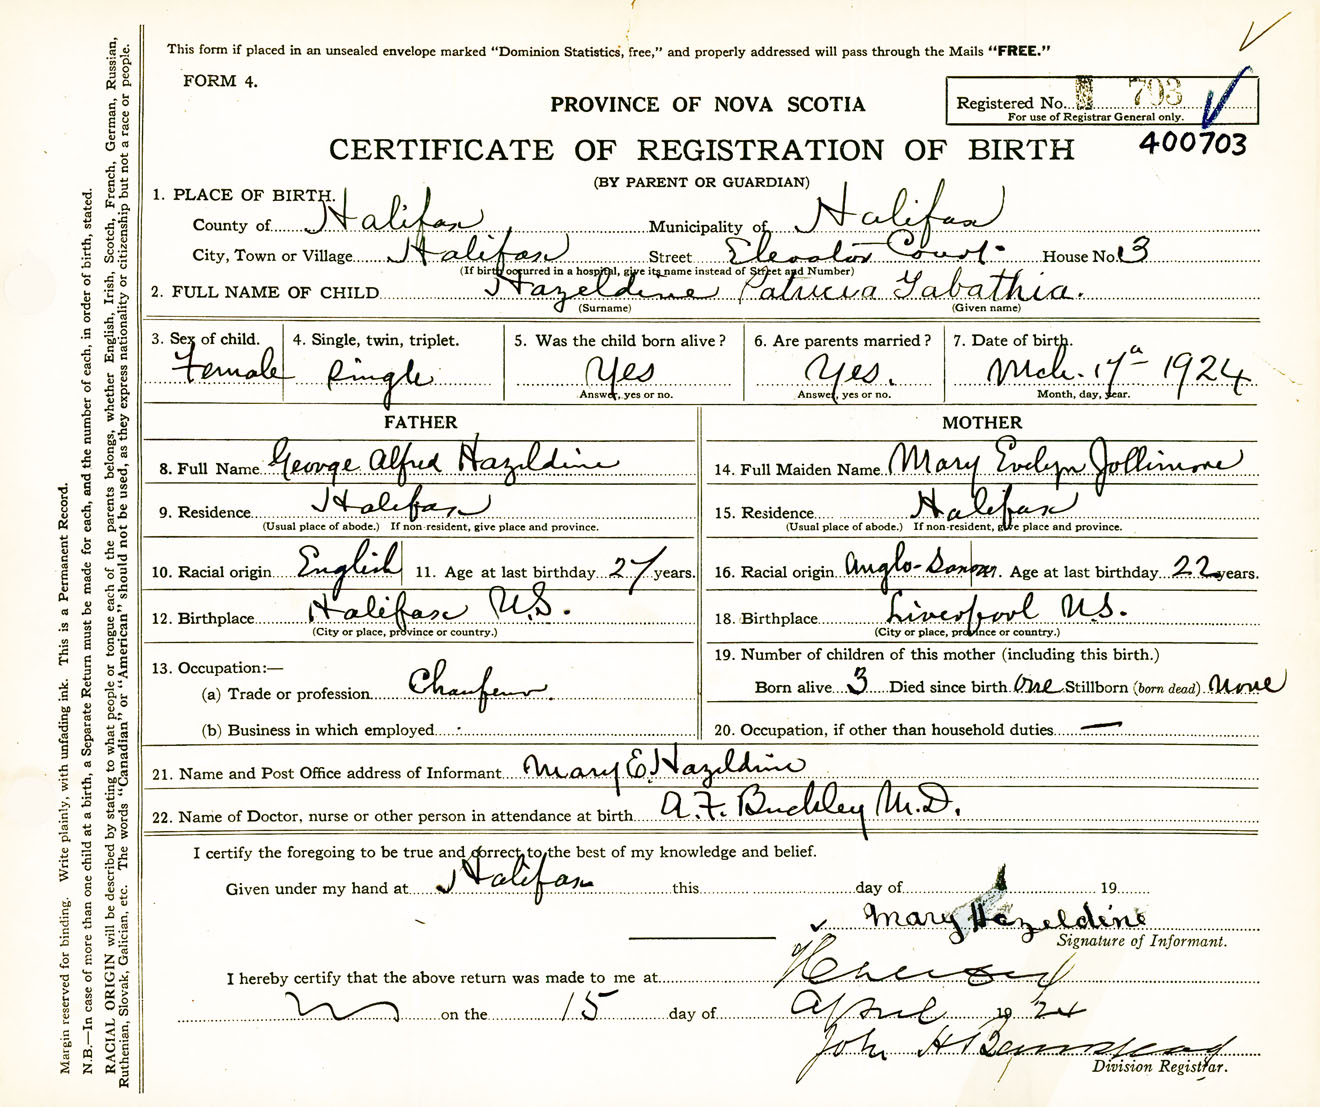 This form if placed in an unsealed envelope marked “Dominion Statistics, free,” and properly addressed will pass through the Mails “FREE.”
FORM 4.
PROVINCE OF NOVA SCOTIA
Registered No. 703
For use of Registrar General only.
400703
CERTIFICATE OF REGISTRATION OF BIRTH
(BY PARENT OR GUARDIAN)
1. PLACE OF BIRTH.
County of Halifax Municipality of Halifax
City, Town or Village Halifax Street Elevator Court House No. 3
(If birth occurred in a hospital, give its name instead of Street and Number)
2. FULL NAME OF CHILD Hazeldine Patricia Tabathia.
(Surname) (Given name)
3. Sex of child. 4. Single, twin, triplet. 5. Was the child born alive? 6. Are parents married? 7. Date of birth.
Female Single Yes Yes. Mch. 17th 1924
Answer, yes or no. Answer, yes or no. Month, day, year.
FATHER MOTHER
8. Full Name George Alfred Hazeldine 14. Full Maiden Name Mary Evelyn Jollimore
9. Residence Halifax 15. Residence Halifax
(Usual place of abode.) If non-resident, give place and province. (Usual place of abode.) If non-resident, give place and province.
10. Racial origin English 11. Age at last birthday 27 years. 16. Racial origin Anglo- . Age at last birthday 22 years.
12. Birthplace Halifax N.S. 18. Birthplace Liverpool N.S.
(City or place, province or country.) (City or place, province or country.)
13. Occupation:— 19. Number of children of this mother (including this birth.)
(a) Trade or profession Chaufeur. Born alive 3 Died since birth One Stillborn (born dead) None
(b) Business in which employed 20. Occupation, if other than household duties —
21. Name and Post Office address of Informant Mary E. Hazeldine
22. Name of Doctor, nurse or other person in attendance at birth A. F. Buckley M.D.
I certify the foregoing to be true and correct to the best of my knowledge and belief.
Given under my hand at Halifax this day of 19
Mary Hazeldine
Signature of Informant.
I hereby certify that the above return was made to me at
on the 15 day of April 1924
John H
Division Registrar.
Margin reserved for binding. Write plainly, with unfading ink. This is a Permanent Record.
N.B.—In case of more than one child at a birth, a Separate Return must be made for each, and the number of each, in order of birth, stated.
RACIAL ORIGIN will be described by stating to what people or tongue each of the parents belongs, whether English, Irish, Scotch, French, German, Russian,
Ruthenian, Slovak, Galician, etc. The words “Canadian” or “American” should not be used, as they express nationality or citizenship but not a race or people.